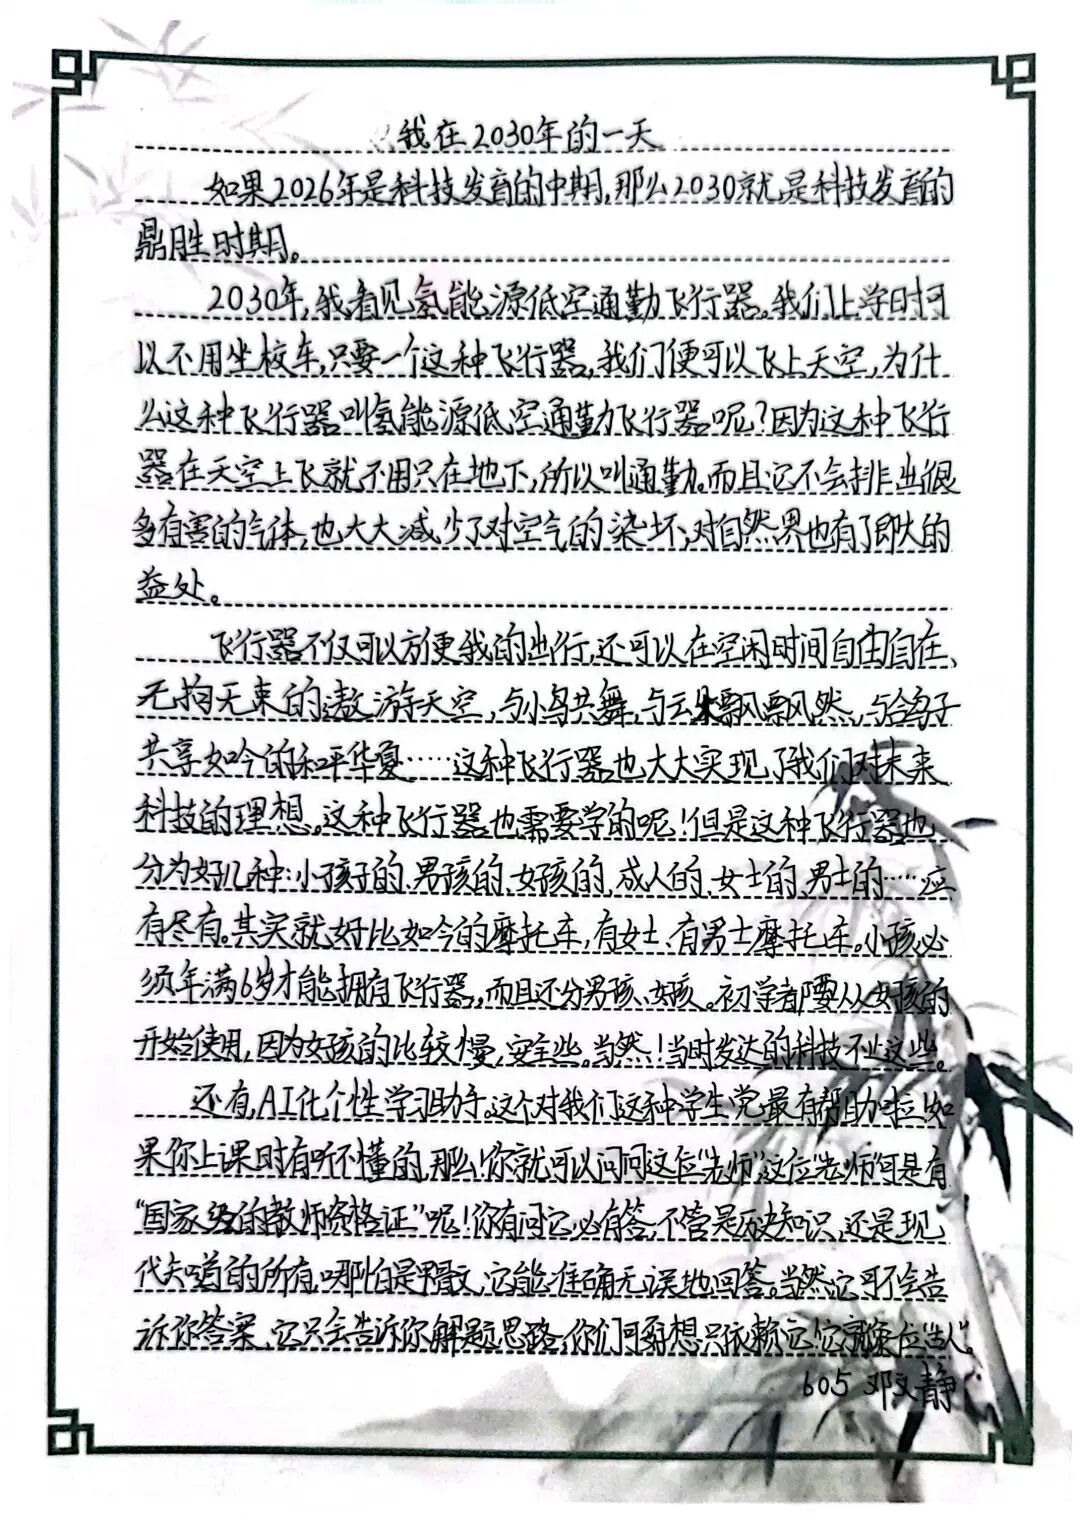 我在2030年的一天
如果2026年是科技发育的中期,那么2030就是科技发育的
鼎胜时期。
2030年,我看见氢能源低空通勤飞行器。我们上学时可
以不用坐校车,只要一个这种飞行器,我们便可以飞上天空,为什
么这种飞行器叫氢能源低空通勤飞行器呢?因为这种飞行
器在天空上飞就不用只在地下,所以叫通勤。而且它不会排出很
多有害的气体,也大大减少了对空气的染坏,对自然界也有了即大的
益处。
飞行器不仅可以方便我的出行,还可以在空闲时间自由自在、
无拘无束的遨游天空,与小鸟共舞,与云朵飘飘然,与鸽子
共享如今的和平华夏……这种飞行器也大大实现了我们对未来
科技的理想。这种飞行器也需要学的呢!但是这种飞行器也
分为好几种:小孩子的、男孩的、女孩的、成人的、女士的、男士的……应
有尽有。其实就好比如今的摩托车,有女士、有男士摩托车。小孩必
须年满6岁才能拥有飞行器,而且还分男孩、女孩。初学都要从女孩的
开始使用,因为女孩的比较慢,安全些。当然!当时发达的科技不止这些。
还有,AI化个性学习助手。这个对我们这种学生党最有帮助啦!如
果你上课时有听不懂的,那么!你就可以问问这位“老师”,这位“老师”可是有
“国家级的教师资格证”呢!你有问它必有答,不管是历史知识,还是现
代知道的所有,哪怕是散文,它能准确无误地回答。当然它可不会告
诉你答案,它只会告诉你解题思路,你们可别想只依赖它!它就像位“古人”。
605 邓文静